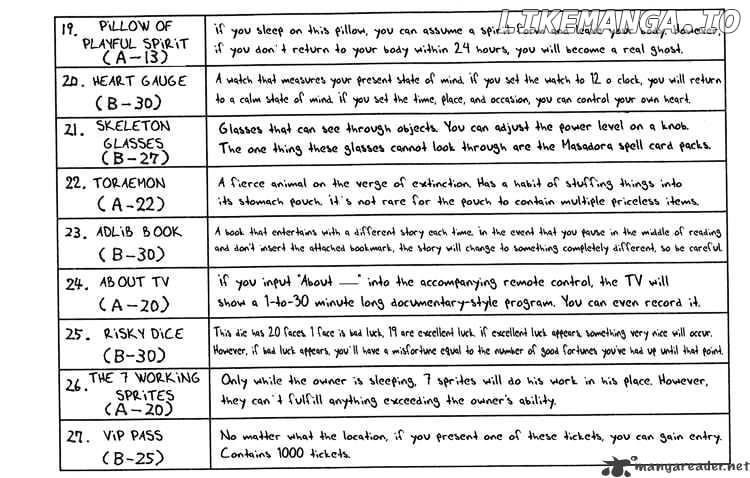 LIKEMANGA.IO
19. PILLOW OF
PLAYFUL SPIRIT
(A-13)
if you sleep on this pillow, you can assume a spirit form and leave your body. However,
if you don't return to your body within 24 hours, you will become a real ghost.
20. HEART GAUGE
(B-30)
A watch that measures your present state of mind. if you set the watch to 12 o clock, you will return
to a calm state of mind. if you set the time, place, and occasion, you can control your own heart.
21. SKELETON
GLASSES
(B-27)
Glasses that can see through objects. You can adjust the power level on a knob.
The one thing these glasses cannot look through are the Masadora spell card packs.
22. TORAEMON
(A-22)
A fierce animal on the verge of extinction. Has a habit of stuffing things into
its stomach pouch. it's not rare for the pouch to contain multiple priceless items.
23. ADLIB BOOK
(B-30)
A book that entertains with a different story each time. in the event that you pause in the middle of reading
and don't insert the attached bookmark, the story will change to something completely different, so be careful.
24. ABOUT TV
(A-20)
if you input "About ——" into the accompanying remote control, the TV will
show a 1-to-30 minute long documentary-style program. You can even record it.
25. RISKY DICE
(B-30)
This die has 20 faces. 1 face is bad luck, 19 are excellent luck. if excellent luck appears, something very nice will occur.
However, if bad luck appears, you'll have a misfortune equal to the number of good fortunes you've had up until that point.
26. THE 7 WORKING
SPRITES
(A-20)
Only while the owner is sleeping, 7 sprites will do his work in his place. However,
they can't fulfill anything exceeding the owner's ability.
27. VIP PASS
(B-25)
No matter what the location, if you present one of these tickets, you can gain entry.
Contains 1000 tickets.
mangareader.net